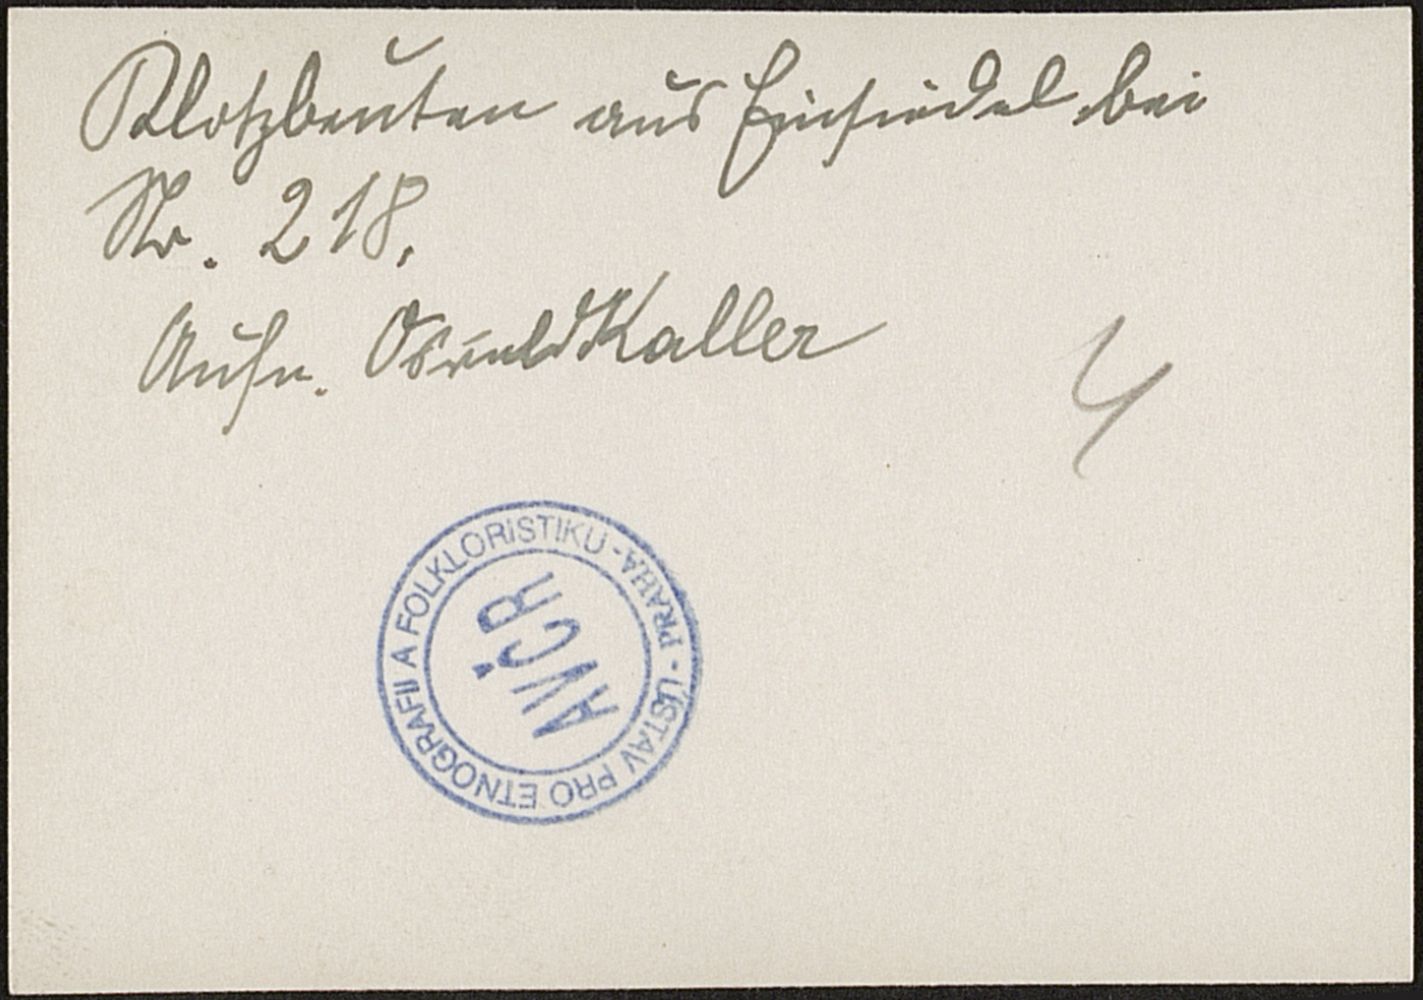 Klotzbeuten aus Einsiedel bei
Nr. 218.
Aufn. Oswald Kaller
4
ÚSTAV PRO ETNOGRAFII A FOLKLORISTIKU - PRAHA -
AVČR